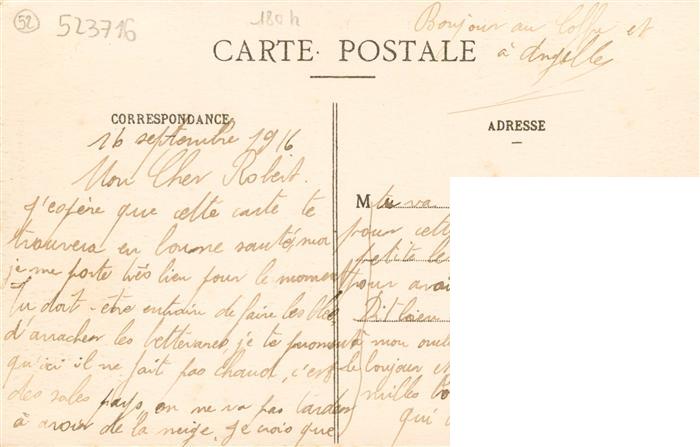 52
523716
180 h
Bonjour au Coffe et
à Angelle
CARTE POSTALE
CORRESPONDANCE
16 septembre 1916
Mon Cher Robert.
J'espère que cette carte te
trouvera en bonne santé, moi
je me porte très bien pour le moment
Tu doit-être entraire de faire les blés,
d'arracher les betteraves, je te promet
qu'ici il ne fait pas chaud, c'est
des sales pays, on ne va pas tarder
à avoir de la neige. Je vois que
ADRESSE
M tu va
pour cette
petite
pour avoir
Dit bien
à mon
le bonjour et
milles
qui